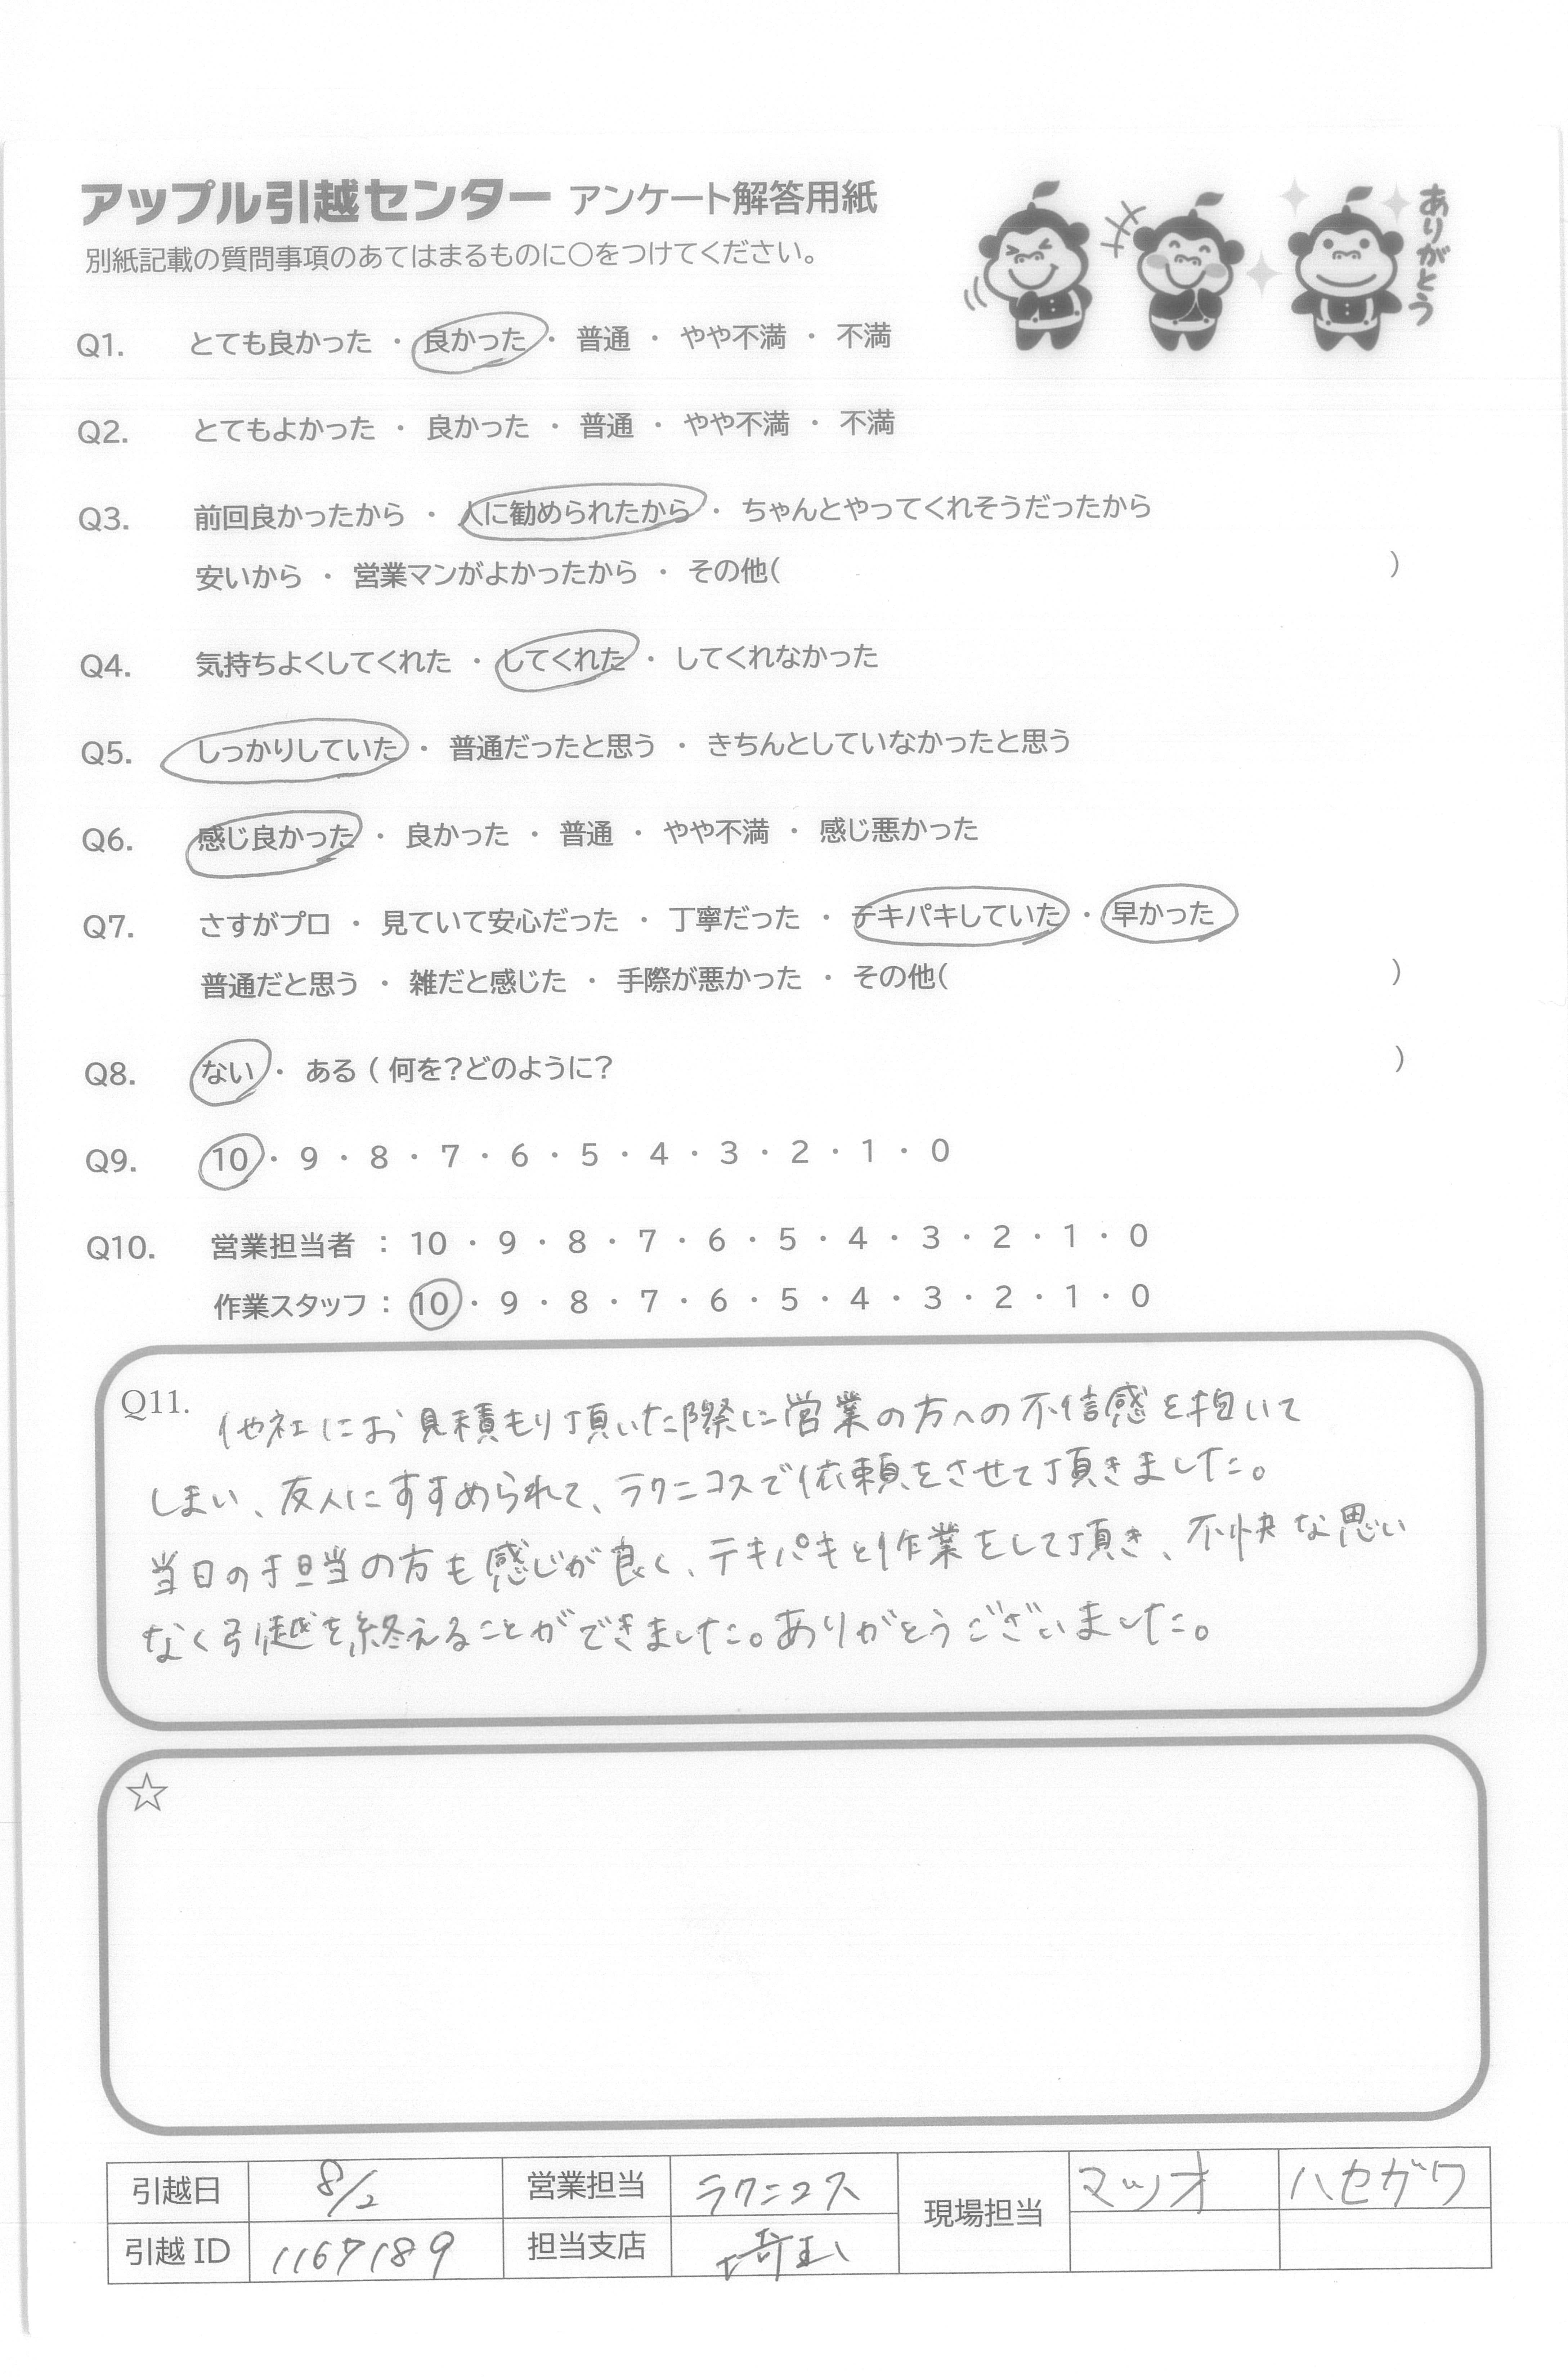 アップル引越センター アンケート解答用紙
ありがとう
別紙記載の質問事項のあてはまるものに○をつけてください。
Q1. とても良かった ・ 良かった ・ 普通 ・ やや不満 ・ 不満
Q2. とてもよかった ・ 良かった ・ 普通 ・ やや不満 ・ 不満
Q3. 前回良かったから ・ 人に勧められたから ・ ちゃんとやってくれそうだったから
安いから ・ 営業マンがよかったから ・ その他( )
Q4. 気持ちよくしてくれた ・ してくれた ・ してくれなかった
Q5. しっかりしていた ・ 普通だったと思う ・ きちんとしていなかったと思う
Q6. 感じ良かった ・ 良かった ・ 普通 ・ やや不満 ・ 感じ悪かった
Q7. さすがプロ ・ 見ていて安心だった ・ 丁寧だった ・ テキパキしていた ・ 早かった
普通だと思う ・ 雑だと感じた ・ 手際が悪かった ・ その他( )
Q8. ない ・ ある ( 何を?どのように? )
Q9. 10 ・ 9 ・ 8 ・ 7 ・ 6 ・ 5 ・ 4 ・ 3 ・ 2 ・ 1 ・ 0
Q10. 営業担当者 : 10 ・ 9 ・ 8 ・ 7 ・ 6 ・ 5 ・ 4 ・ 3 ・ 2 ・ 1 ・ 0
作業スタッフ : 10 ・ 9 ・ 8 ・ 7 ・ 6 ・ 5 ・ 4 ・ 3 ・ 2 ・ 1 ・ 0
Q11. 他社にお見積もり頂いた際に営業の方への不信感を抱いて
しまい、友人にすすめられて、ラクニコスで依頼をさせて頂きました。
当日の担当の方も感じが良く、テキパキと作業をして頂き、不快な思い
なく引越を終えることができました。ありがとうございました。
☆
引越日 8/2 営業担当 ラクニコス 現場担当 マツオ ハセガワ
引越ID 1167189 担当支店 埼玉